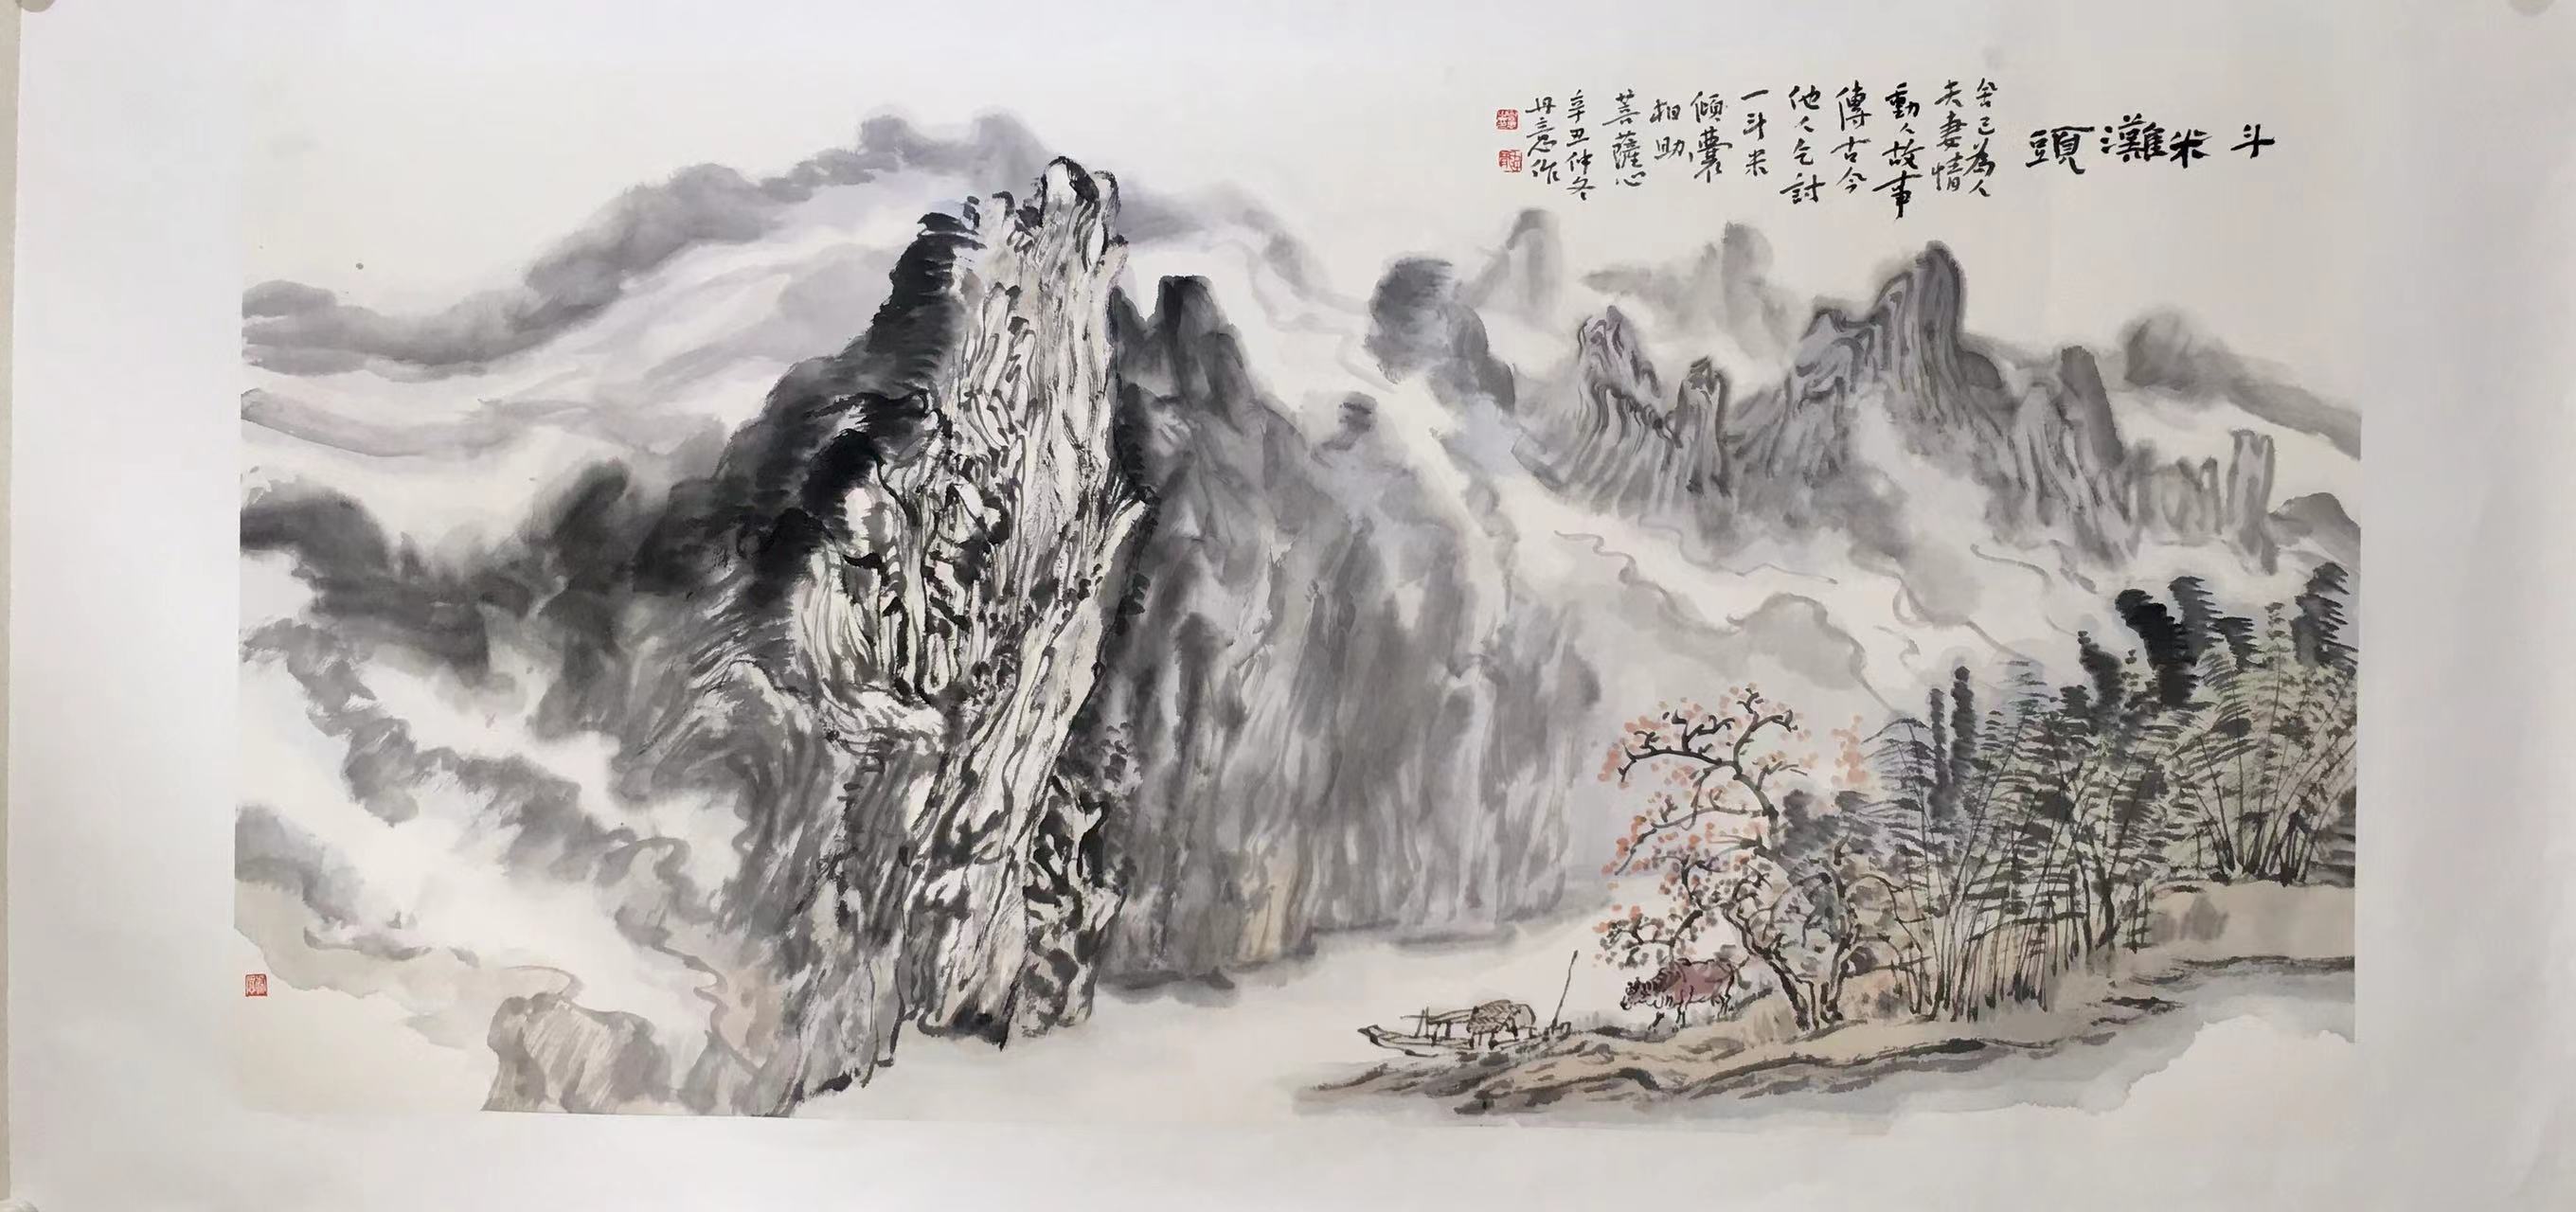 斗米灘頭
舍己為人
夫妻情
動人故事
傳古今
他人乞討
一斗米
傾囊
相助
菩薩心
辛丑仲冬
丹意作